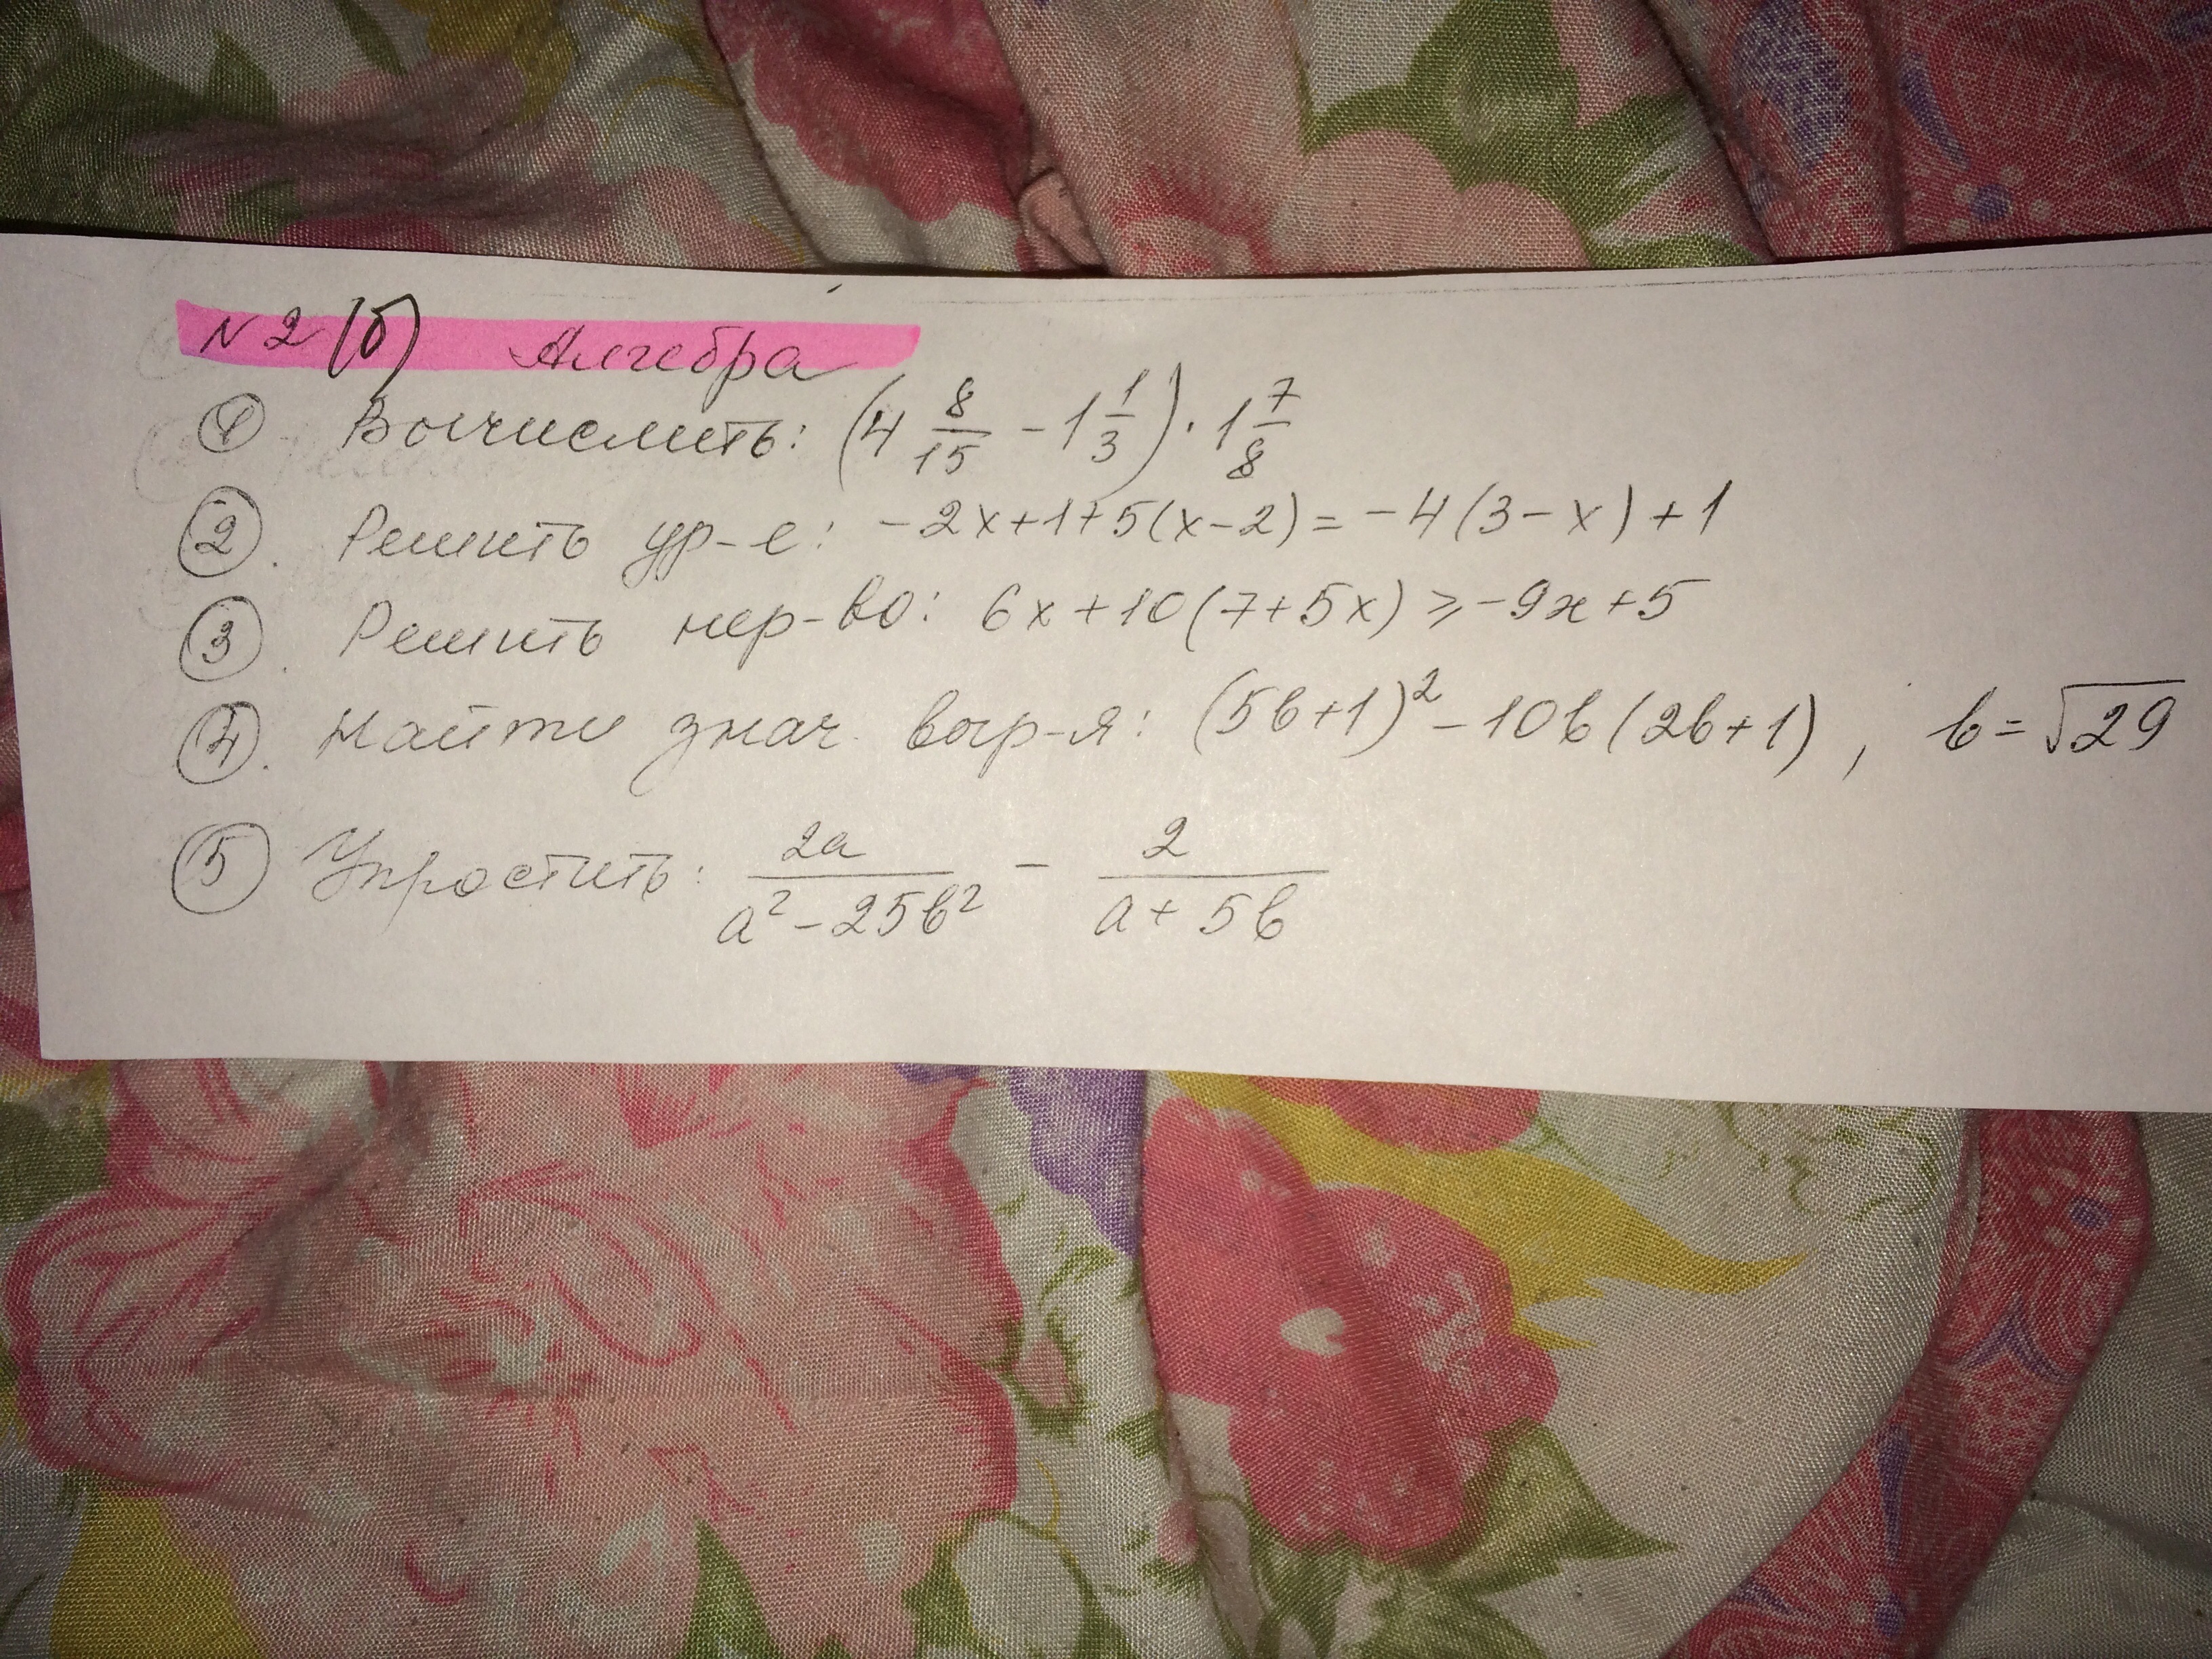 N2(б) Алгебра
① Вычислить: (4 8/15 - 1 1/3) · 1 7/8
②. Решить ур-е: -2x+1+5(x-2)=-4(3-x)+1
③. Решить нер-во: 6x+10(7+5x)⩾-9x+5
④. Найти знач. выр-я: (5b+1)²-10b(2b+1), b=√29
⑤ Упростить: 2a/(a²-25b²) - 2/(a+5b)